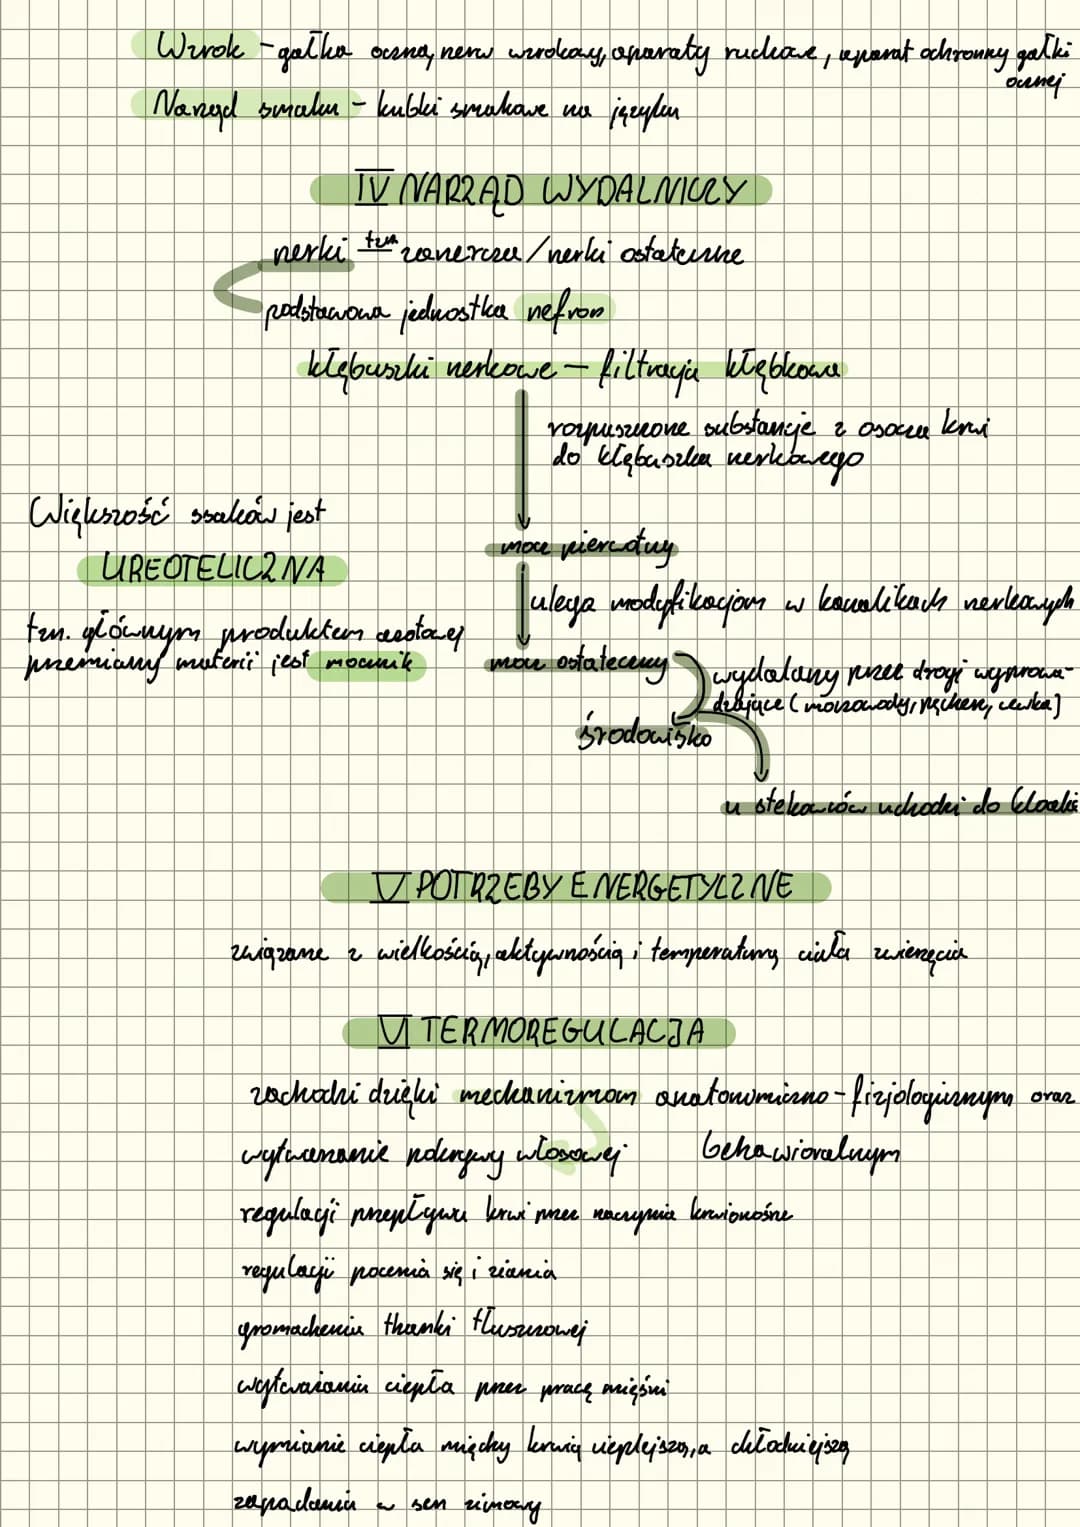 Wzrok - gałka oczna, nerw wzrokowy, aparaty ruchowe, aparat ochronny gałki
ocznej
Narząd smaku - kubki smakowe na języku
IV NARZĄD WYDALNICZY
nerki tzw zanercze / nerki ostateczne
podstawowa jednostka nefron
kłębuszki nerkowe - filtracja kłębkowa
rozpuszczone substancje z osocza krwi
do kłębuszka nerkowego
Większość ssaków jest
mocz pierwotny
UREOTELICZNA
ulega modyfikacjom w kanalikach nerkowych
tzn. głównym produktem azotowej
przemiany materii jest mocznik
mocz ostateczny
wydalany przez drogi wyprowa-
dzające (moczowody, pęcherz, cewka)
środowisko
u stekowców uchodzi do kloaki
V POTRZEBY ENERGETYCZNE
związane z wielkością, aktywnością i temperaturą ciała zwierzęcia
VI TERMOREGULACJA
zachodzi dzięki mechanizmom anatomiczno - fizjologicznym oraz
wytwarzanie pokrywy włosowej behawioralnym
regulacji przepływu krwi przez naczynia krwionośne
regulacji pocenia się i ziania
gromadzeniu tkanki tłuszczowej
wytwarzaniu ciepła przez pracę mięśni
wymianie ciepła między krwią cieplejszą, a chłodniejszą
zapadaniu w sen zimowy